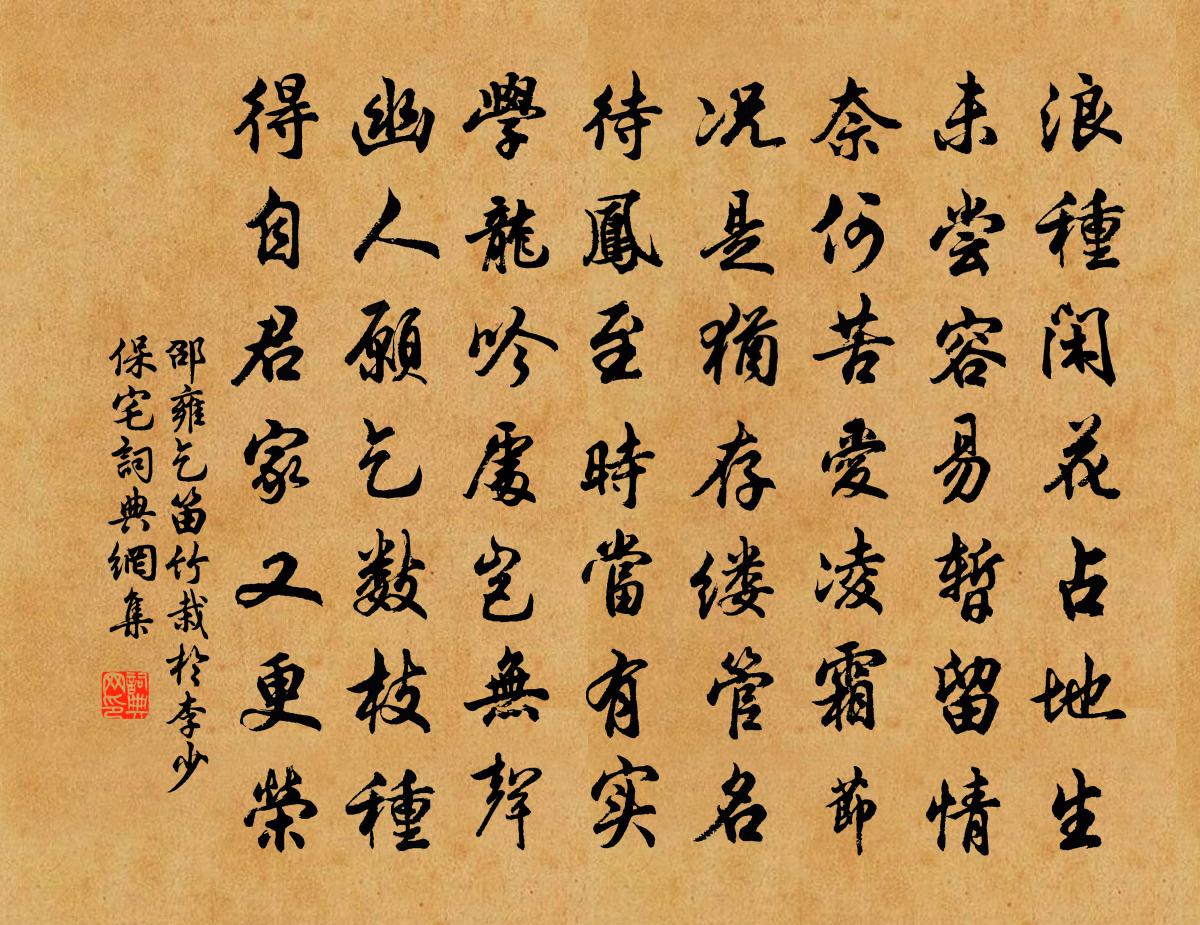 浪種閑花占地生
未嘗容易暫留情
奈何苦愛凌霜節
況是猶存缕管名
待鳳至時當有实
學龍吟處豈無聲
幽人願乞數枝種
得自君家又更榮
邵雍乞笛竹栽於李少
保宅詞典網集
詞典
网印